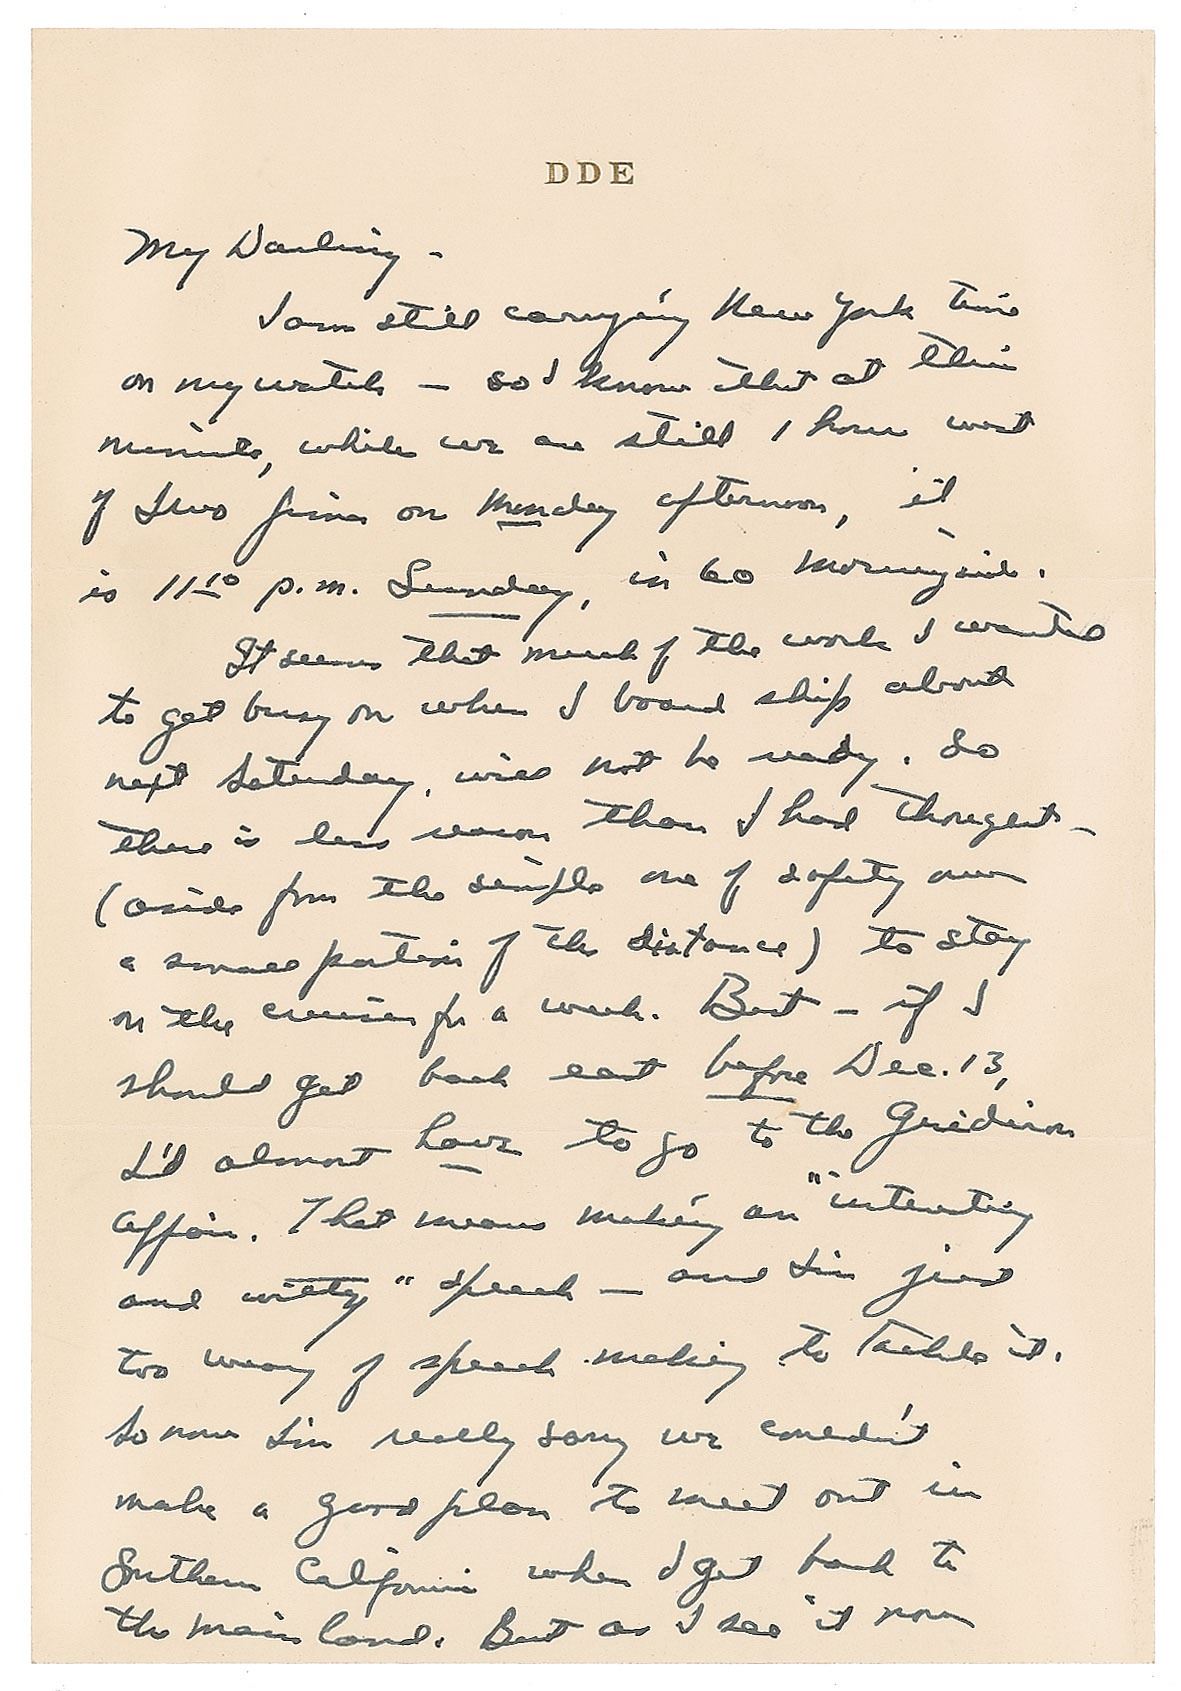 DDE
My Darling -
I am still carrying New York time
on my watch - so I know that at this
minute, while we are still 1 hour west
of Iwo Jima on Monday afternoon, it
is 11 10 p.m. Sunday, in 60 Morningside.
It seems that much of the work I wanted
to get busy on when I board ship about
next Saturday, will not be ready. So
there is less reason than I had thought -
(aside from the simple one of safety over
a small portion of the distance) to stay
on the cruiser for a week. But - if I
should get back east before Dec. 13,
I'd almost have to go to the Gridiron
affair. That means making an "interesting
and witty" speech - and I'm just
too weary of speech making to tackle it.
So now I'm really sorry we couldn't
make a good plan to meet out in
Southern California when I get back to
the main land. But as I see it now